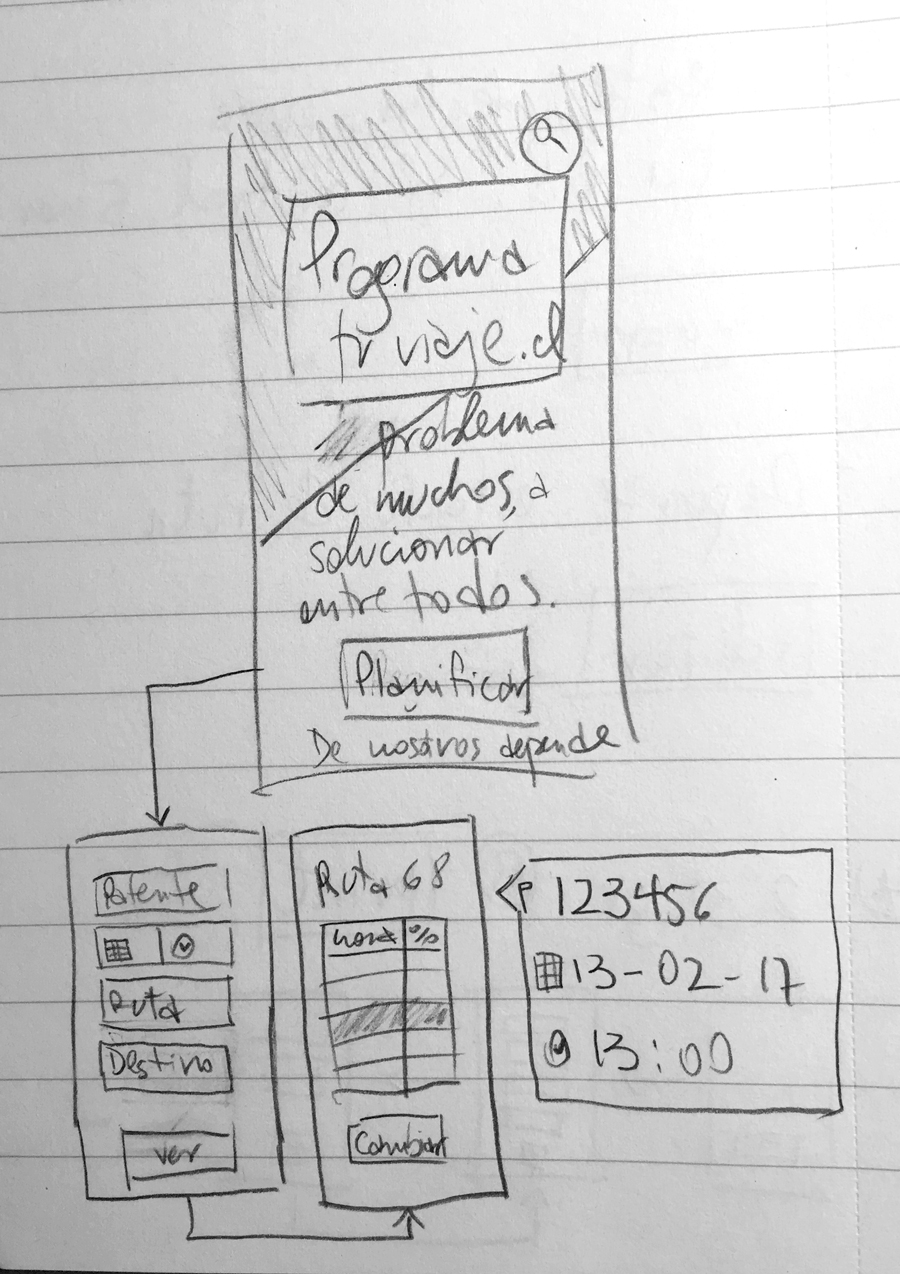 Programa
tu viaje.cl
problema
de muchos, a
solucionar
entre todos.
Planificar
De nosotros depende
Patente
Ruta
Destino
ver
Ruta 68
hora %
Cambiar
P 123456
13-02-17
13:00